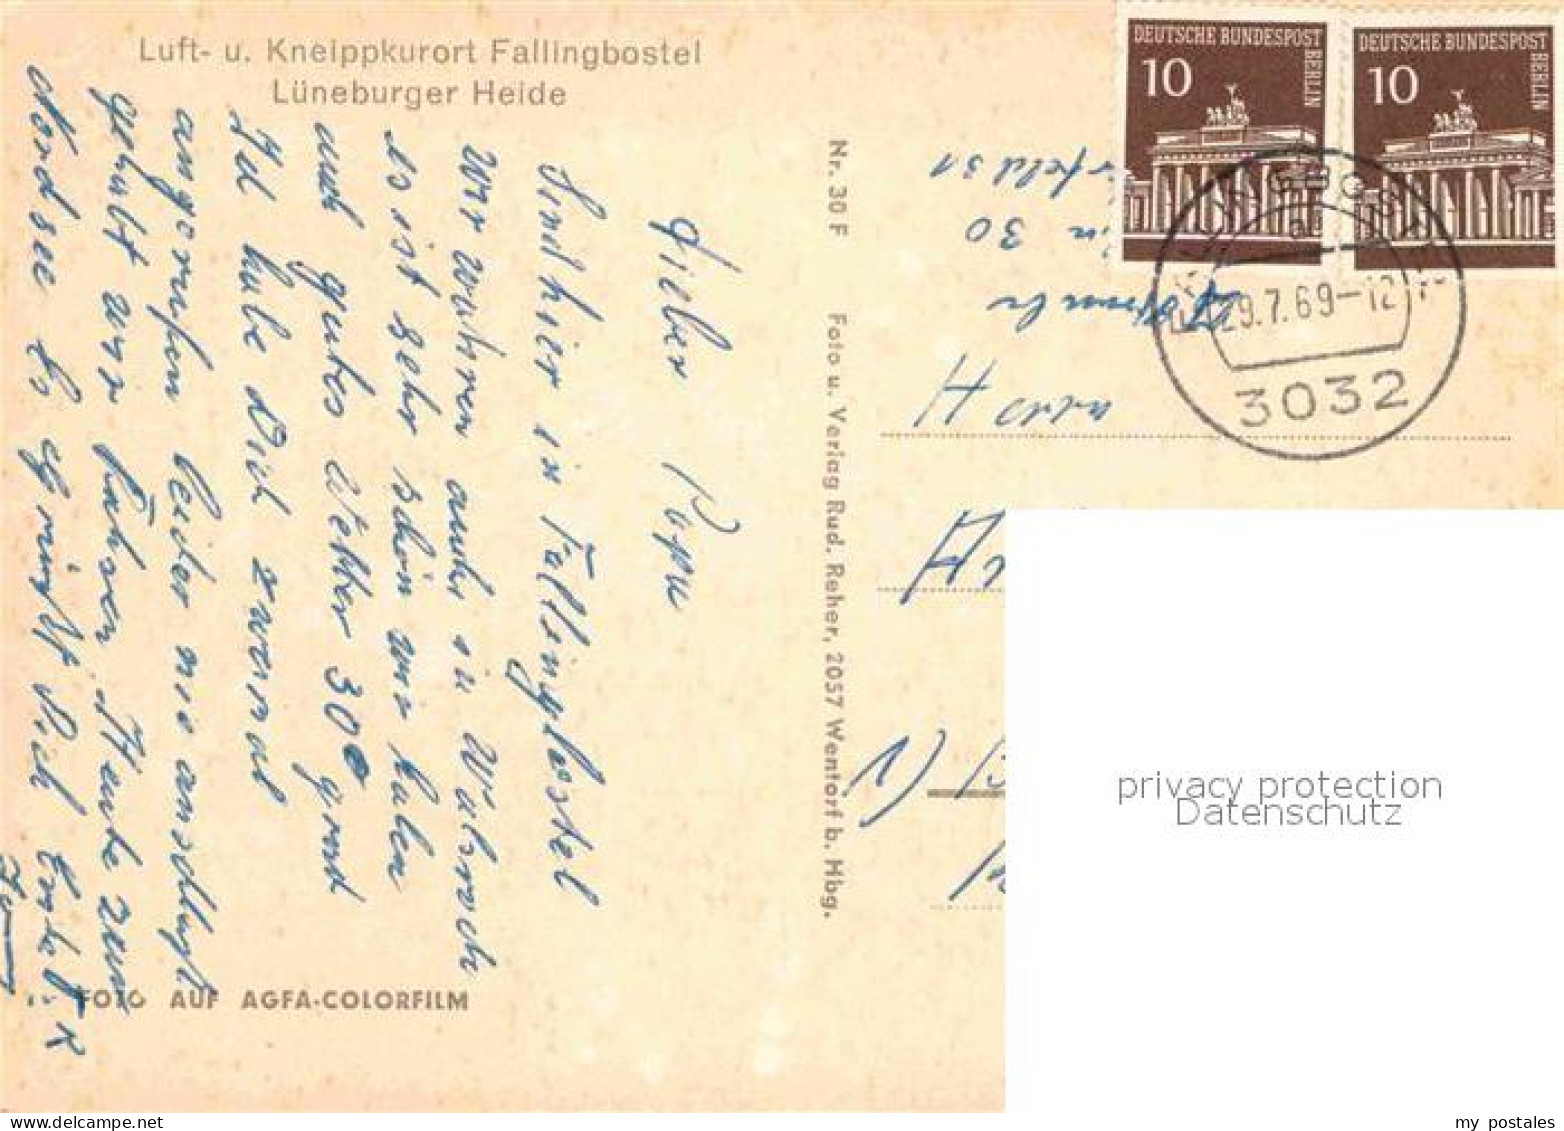 Luft- u. Kneippkurort Fallingbostel
Lüneburger Heide
Lieber Papa
Sind hier in Fallingbostel
wir wahren auch in Walsrode
es ist sehr schön wir haben
auch gutes Wetter 30° grad
Ich habe Dich zweimal
angerufen leider nie anschluß
gehabt wir fahren Heute zum
Nordsee Es grüßt Dich
FOTO AUF AGFA-COLORFILM
Nr. 30 F Foto u. Verlag Rud. Reher, 2057 Wentorf b. Hbg.
DEUTSCHE BUNDESPOST
BERLIN
10
DEUTSCHE BUNDESPOST
BERLIN
10
29.7.69-12
3032
feld 31
30
privacy protection
Datenschutz
my postales